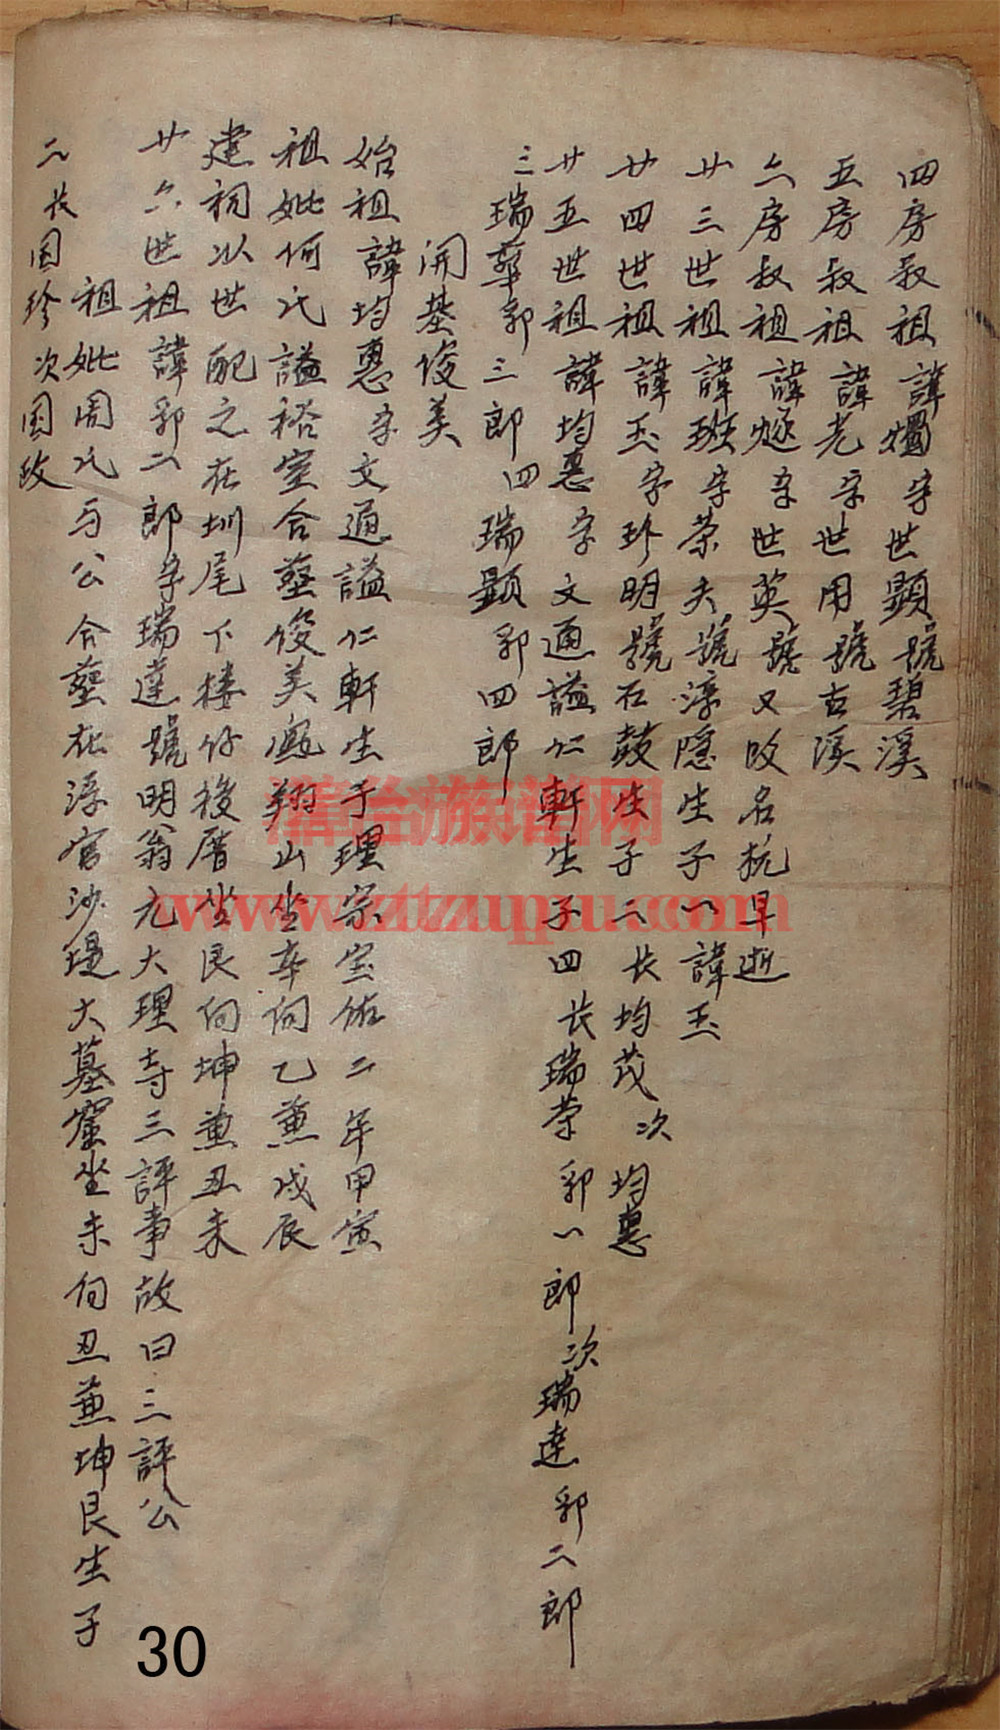 四房叔祖諱燭字世顯號碧溪
五房叔祖諱老字世用號古溪
六房叔祖諱燧字世英號又改名杭早逝
廿三世祖諱班字荣夫號淳隱生子一諱玉
廿四世祖諱玉字珍明號石鼓生子二长均茂次均惠
廿五世祖諱均惠字文通謚仁軒生子四长瑞荣郭一郎次瑞達郭二郎
三瑞華郭三郎四瑞顯郭四郎
開基俊美
始祖諱均惠字文通謚仁軒生于理宗宝佑二年甲寅
祖妣何氏謚裕室合塟俊美翔山坐辛向乙兼戌辰
建祠以世配之在圳尾下楼仔後厝坐艮向坤兼丑未
廿六世祖諱郭二郎字瑞達號明翁元大理寺三評事故曰三評公
祖妣周氏与公合塟在浮宫沙堤大墓窟坐未向丑兼坤艮生子
二长国珍次国政
漳台族谱网
www.ztzupu.com
30